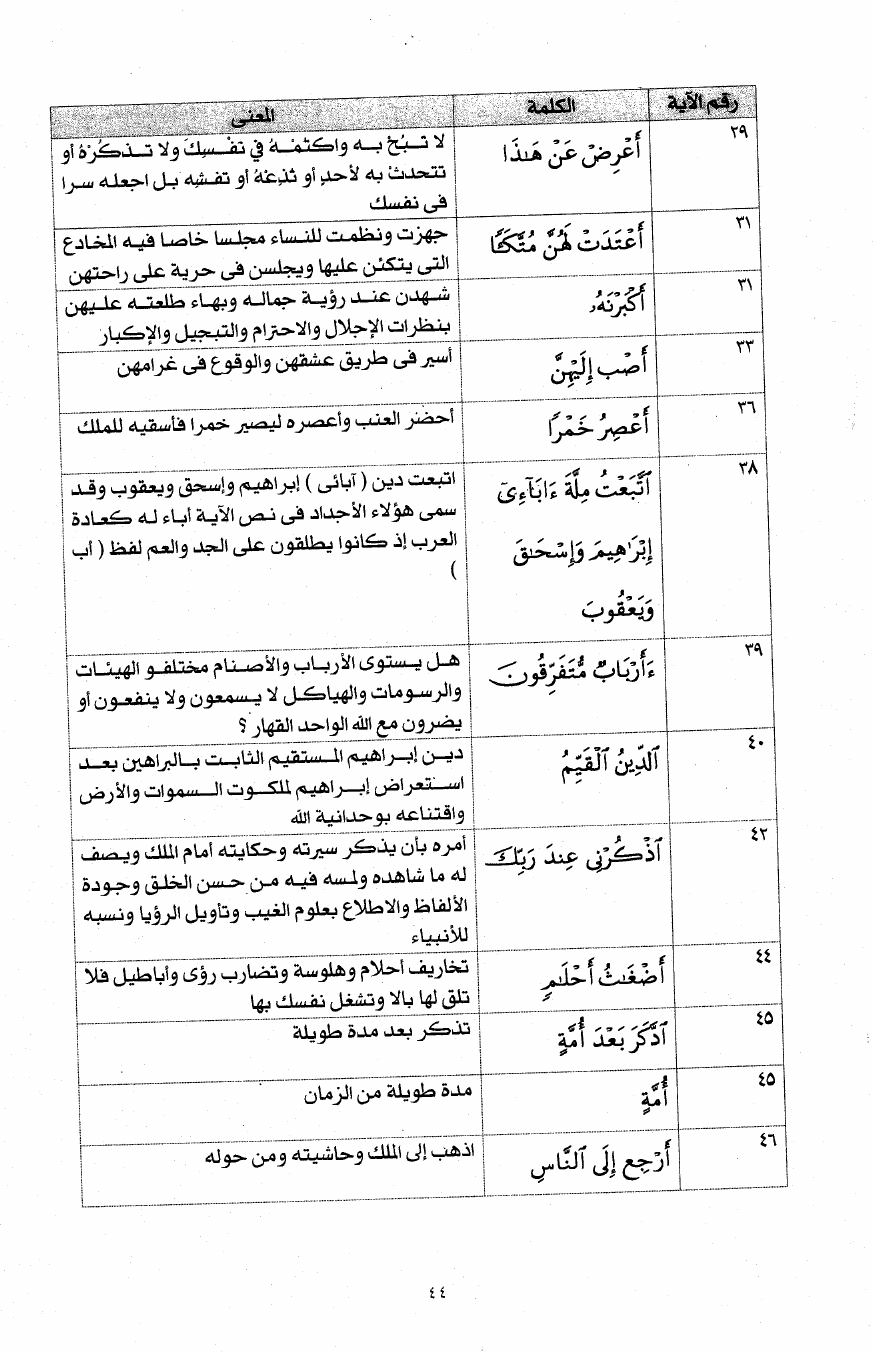 رقم الآية الكلمة المعنى
٢٩ أَعْرِضْ عَنْ هَـٰذَا لا تَبُحْ به واكْتُمْهُ في نفْسِكَ ولا تذكُرْهُ أو
تتحدثْ به لأحدٍ أو تُذِعْهُ أو تفشِهِ بل اجعله سرا
فى نفسك
٣١ أَعْتَدَتْ لَهُنَّ مُتَّكَـًٔا جهزت ونظمت للنساء مجلسا خاصا فيه المخادع
التى يتكئن عليها ويجلسن فى حرية على راحتهن
٣١ أَكْبَرْنَهُۥ شهدن عند رؤية جماله وبهاء طلعته عليهن
بنظرات الإجلال والاحترام والتبجيل والإكبار
٣٣ أَصْبُ إِلَيْهِنَّ أسير فى طريق عشقهن والوقوع فى غرامهن
٣٦ أَعْصِرُ خَمْرًا أحضر العنب وأعصره ليصير خمرا فأسقيه للملك
٣٨ ٱتَّبَعْتُ مِلَّةَ ءَابَآءِىٓ اتبعت دين ( آبائى ) إبراهيم وإسحق ويعقوب وقد
سمى هؤلاء الأجداد فى نص الآية أباء له كعادة
إِبْرَٰهِيمَ وَإِسْحَـٰقَ العرب إذ كانوا يطلقون على الجد والعم لفظ ( أب
)
وَيَعْقُوبَ
٣٩ ءَأَرْبَابٌ مُّتَفَرِّقُونَ هل يستوى الأرباب والأصنام مختلفو الهيئات
والرسومات والهياكل لا يسمعون ولا ينفعون أو
يضرون مع الله الواحد القهار ؟
٤٠ ٱلدِّينُ ٱلْقَيِّمُ دين إبراهيم المستقيم الثابت بالبراهين بعد
استعراض إبراهيم لملكوت السموات والأرض
واقتناعه بوحدانية الله
٤٢ ٱذْكُرْنِى عِندَ رَبِّكَ أمره بأن يذكر سيرته وحكايته أمام الملك ويصف
له ما شاهده ولمسه فيه من حسن الخلق وجودة
الألفاظ والاطلاع بعلوم الغيب وتأويل الرؤيا ونسبه
للأنبياء
٤٤ أَضْغَـٰثُ أَحْلَـٰمٍ تخاريف أحلام وهلوسة وتضارب رؤى وأباطيل فلا
تلق لها بالا وتشغل نفسك بها
٤٥ ٱدَّكَرَ بَعْدَ أُمَّةٍ تذكر بعد مدة طويلة
٤٥ أُمَّةٍ مدة طويلة من الزمان
٤٦ أَرْجِع إِلَى ٱلنَّاسِ اذهب إلى الملك وحاشيته ومن حوله
٤٤